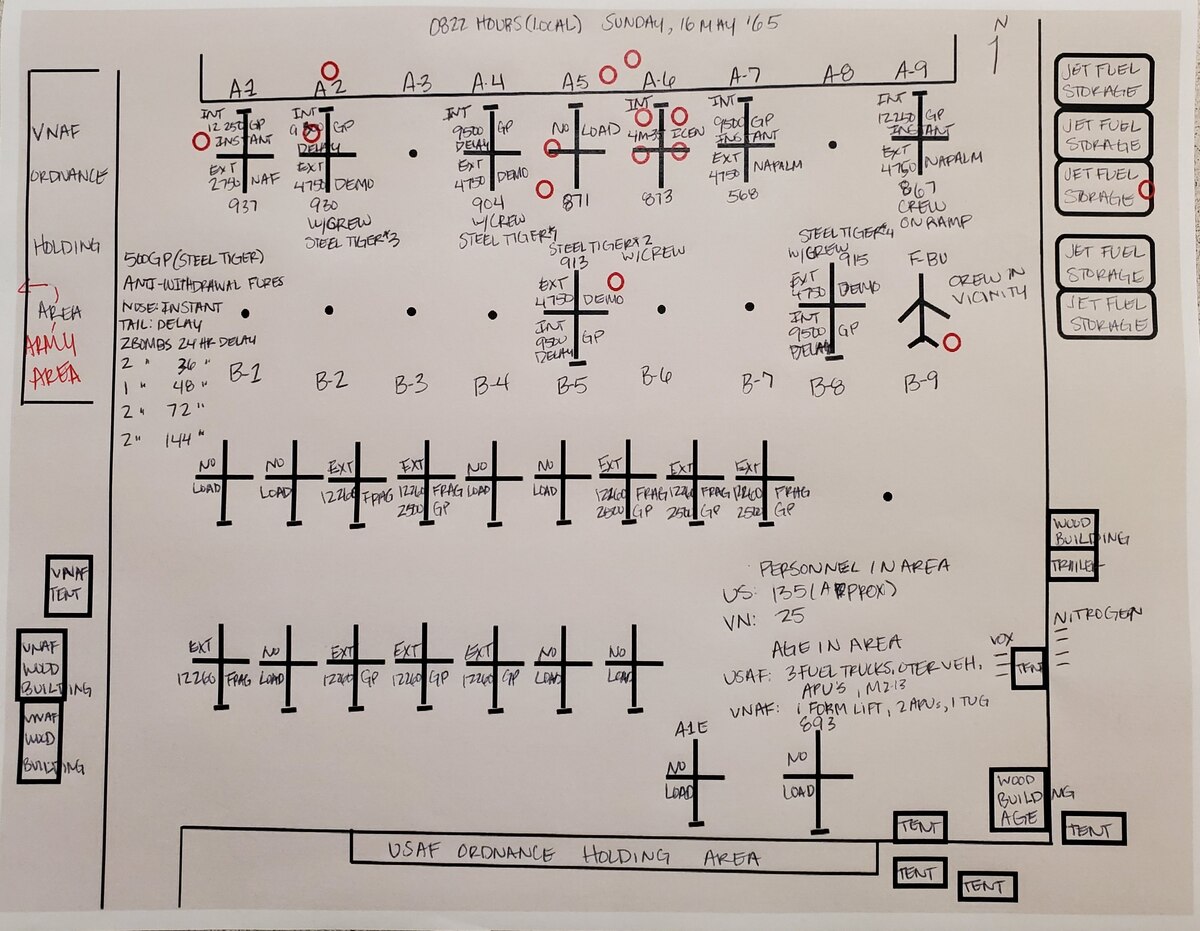 0822 HOURS (LOCAL) SUNDAY, 16 MAY '65
N
A-1
A-2
A-3
A-4
A5
A-6
A-7
A-8
A-9
INT
12 250 GP
INSTANT
EXT
2750 NAF
937
INT
GP
DELAY
EXT
4750 DEMO
930
W/CREW
STEEL TIGER #3
INT
9500 GP
DELAY
EXT
4750 DEMO
904
W/CREW
STEEL TIGER
NO LOAD
871
INT
873
INT
9500 GP
INSTANT
EXT
4750 NAPALM
568
INT
12250 GP
INSTANT
EXT
4750 NAPALM
867
CREW
ON RAMP
JET FUEL
STORAGE
JET FUEL
STORAGE
JET FUEL
STORAGE
JET FUEL
STORAGE
JET FUEL
STORAGE
VNAF
ORDNANCE
HOLDING
AREA
ARMY
AREA
500GP (STEEL TIGER)
ANTI-WITHDRAWAL FUZES
NOSE: INSTANT
TAIL: DELAY
2 BOMBS 24 HR DELAY
2 " 36 "
1 " 48 "
2 " 72 "
2 " 144 "
STEEL TIGER #2
913 W/CREW
EXT
4750 DEMO
INT
9500 GP
DELAY
STEEL TIGER #4
W/CREW 915
EXT
4750 DEMO
INT
9500 GP
DELAY
F-8U
CREW IN
VICINITY
B-1
B-2
B-3
B-4
B-5
B-6
B-7
B-8
B-9
NO
LOAD
NO
LOAD
EXT
12260 FRAG
EXT
12260 FRAG
2500 GP
NO
LOAD
NO
LOAD
EXT
12260 FRAG
2500 GP
EXT
12260 FRAG
2500 GP
EXT
12260 FRAG
2500 GP
WOOD
BUILDING
TRAILER
VNAF
TENT
PERSONNEL IN AREA
US: 135 (APPROX)
VN: 25
NITROGEN
VNAF
WOOD
BUILDING
VNAF
WOOD
BUILDING
EXT
12260 FRAG
NO
LOAD
EXT
12260 GP
EXT
12260 GP
EXT
12260 GP
NO
LOAD
NO
LOAD
AGE IN AREA
USAF: 3 FUEL TRUCKS, OTER VEH,
APU'S, M2-13
VNAF: 1 FORM LIFT, 2 APUs, 1 TUG
VOX
TENT
A1E
NO
LOAD
893
NO
LOAD
WOOD
BUILDING
AGE
TENT
TENT
TENT
TENT
USAF ORDNANCE HOLDING AREA